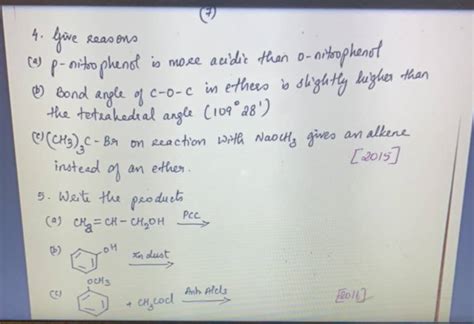 (7)
4. Give reasons
(a) p-nitrophenol is more acidic than o-nitrophenol
(b) Bond angle of C-O-C in ethers is slightly higher than
the tetrahedral angle (109° 28')
(c) (CH3)3C-Br on reaction with NaOCH3 gives an alkene
instead of an ether. [2015]
5. Write the products
(a) CH2=CH-CH2OH PCC
(b) OH Zn dust
(c) OCH3 + CH3COCl Anh AlCl3 [2016]